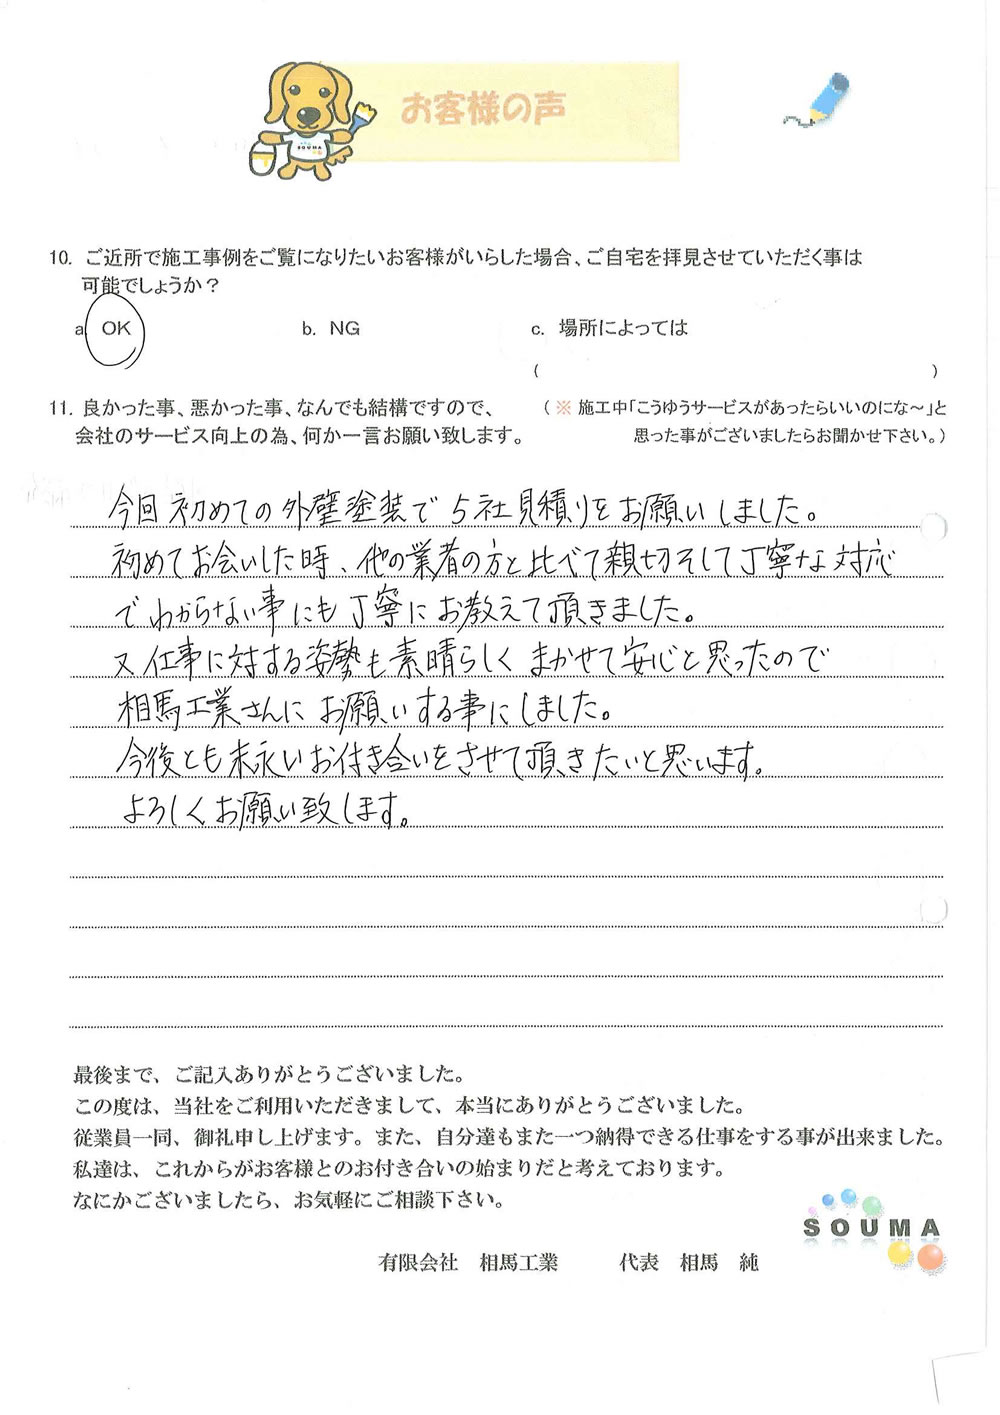 お客様の声
SOUMA
10. ご近所で施工事例をご覧になりたいお客様がいらした場合、ご自宅を拝見させていただく事は
可能でしょうか？
a. OK b. NG c. 場所によっては
( )
11. 良かった事、悪かった事、なんでも結構ですので、 （※ 施工中「こうゆうサービスがあったらいいのにな～」と
会社のサービス向上の為、何か一言お願い致します。 思った事がございましたらお聞かせ下さい。）
今回初めての外壁塗装で5社見積りをお願いしました。
初めてお会いした時、他の業者の方と比べて親切そして丁寧な対応
でわからない事にも丁寧にお教えて頂きました。
又仕事に対する姿勢も素晴らしくまかせて安心と思ったので
相馬工業さんにお願いする事にしました。
今後とも末永いお付き合いをさせて頂きたいと思います。
よろしくお願い致します。
最後まで、ご記入ありがとうございました。
この度は、当社をご利用いただきまして、本当にありがとうございました。
従業員一同、御礼申し上げます。また、自分達もまた一つ納得できる仕事をする事が出来ました。
私達は、これからがお客様とのお付き合いの始まりだと考えております。
なにかございましたら、お気軽にご相談下さい。
SOUMA
有限会社 相馬工業 代表 相馬 純